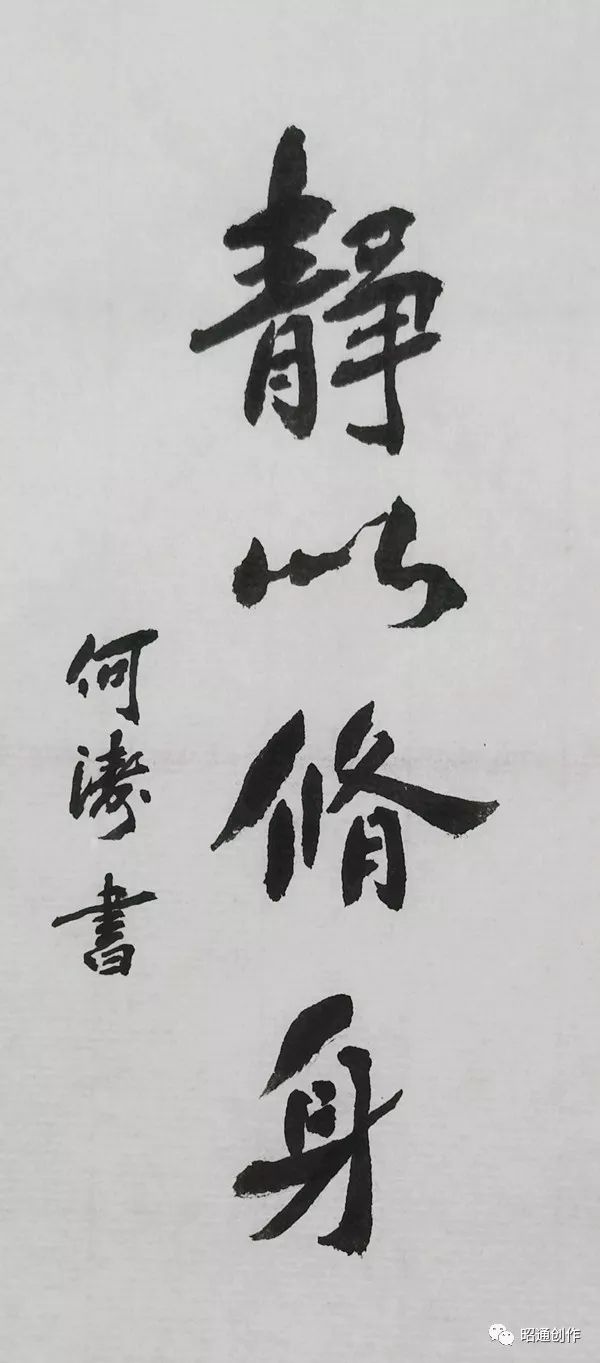 静以脩身
何涛書
昭通创作